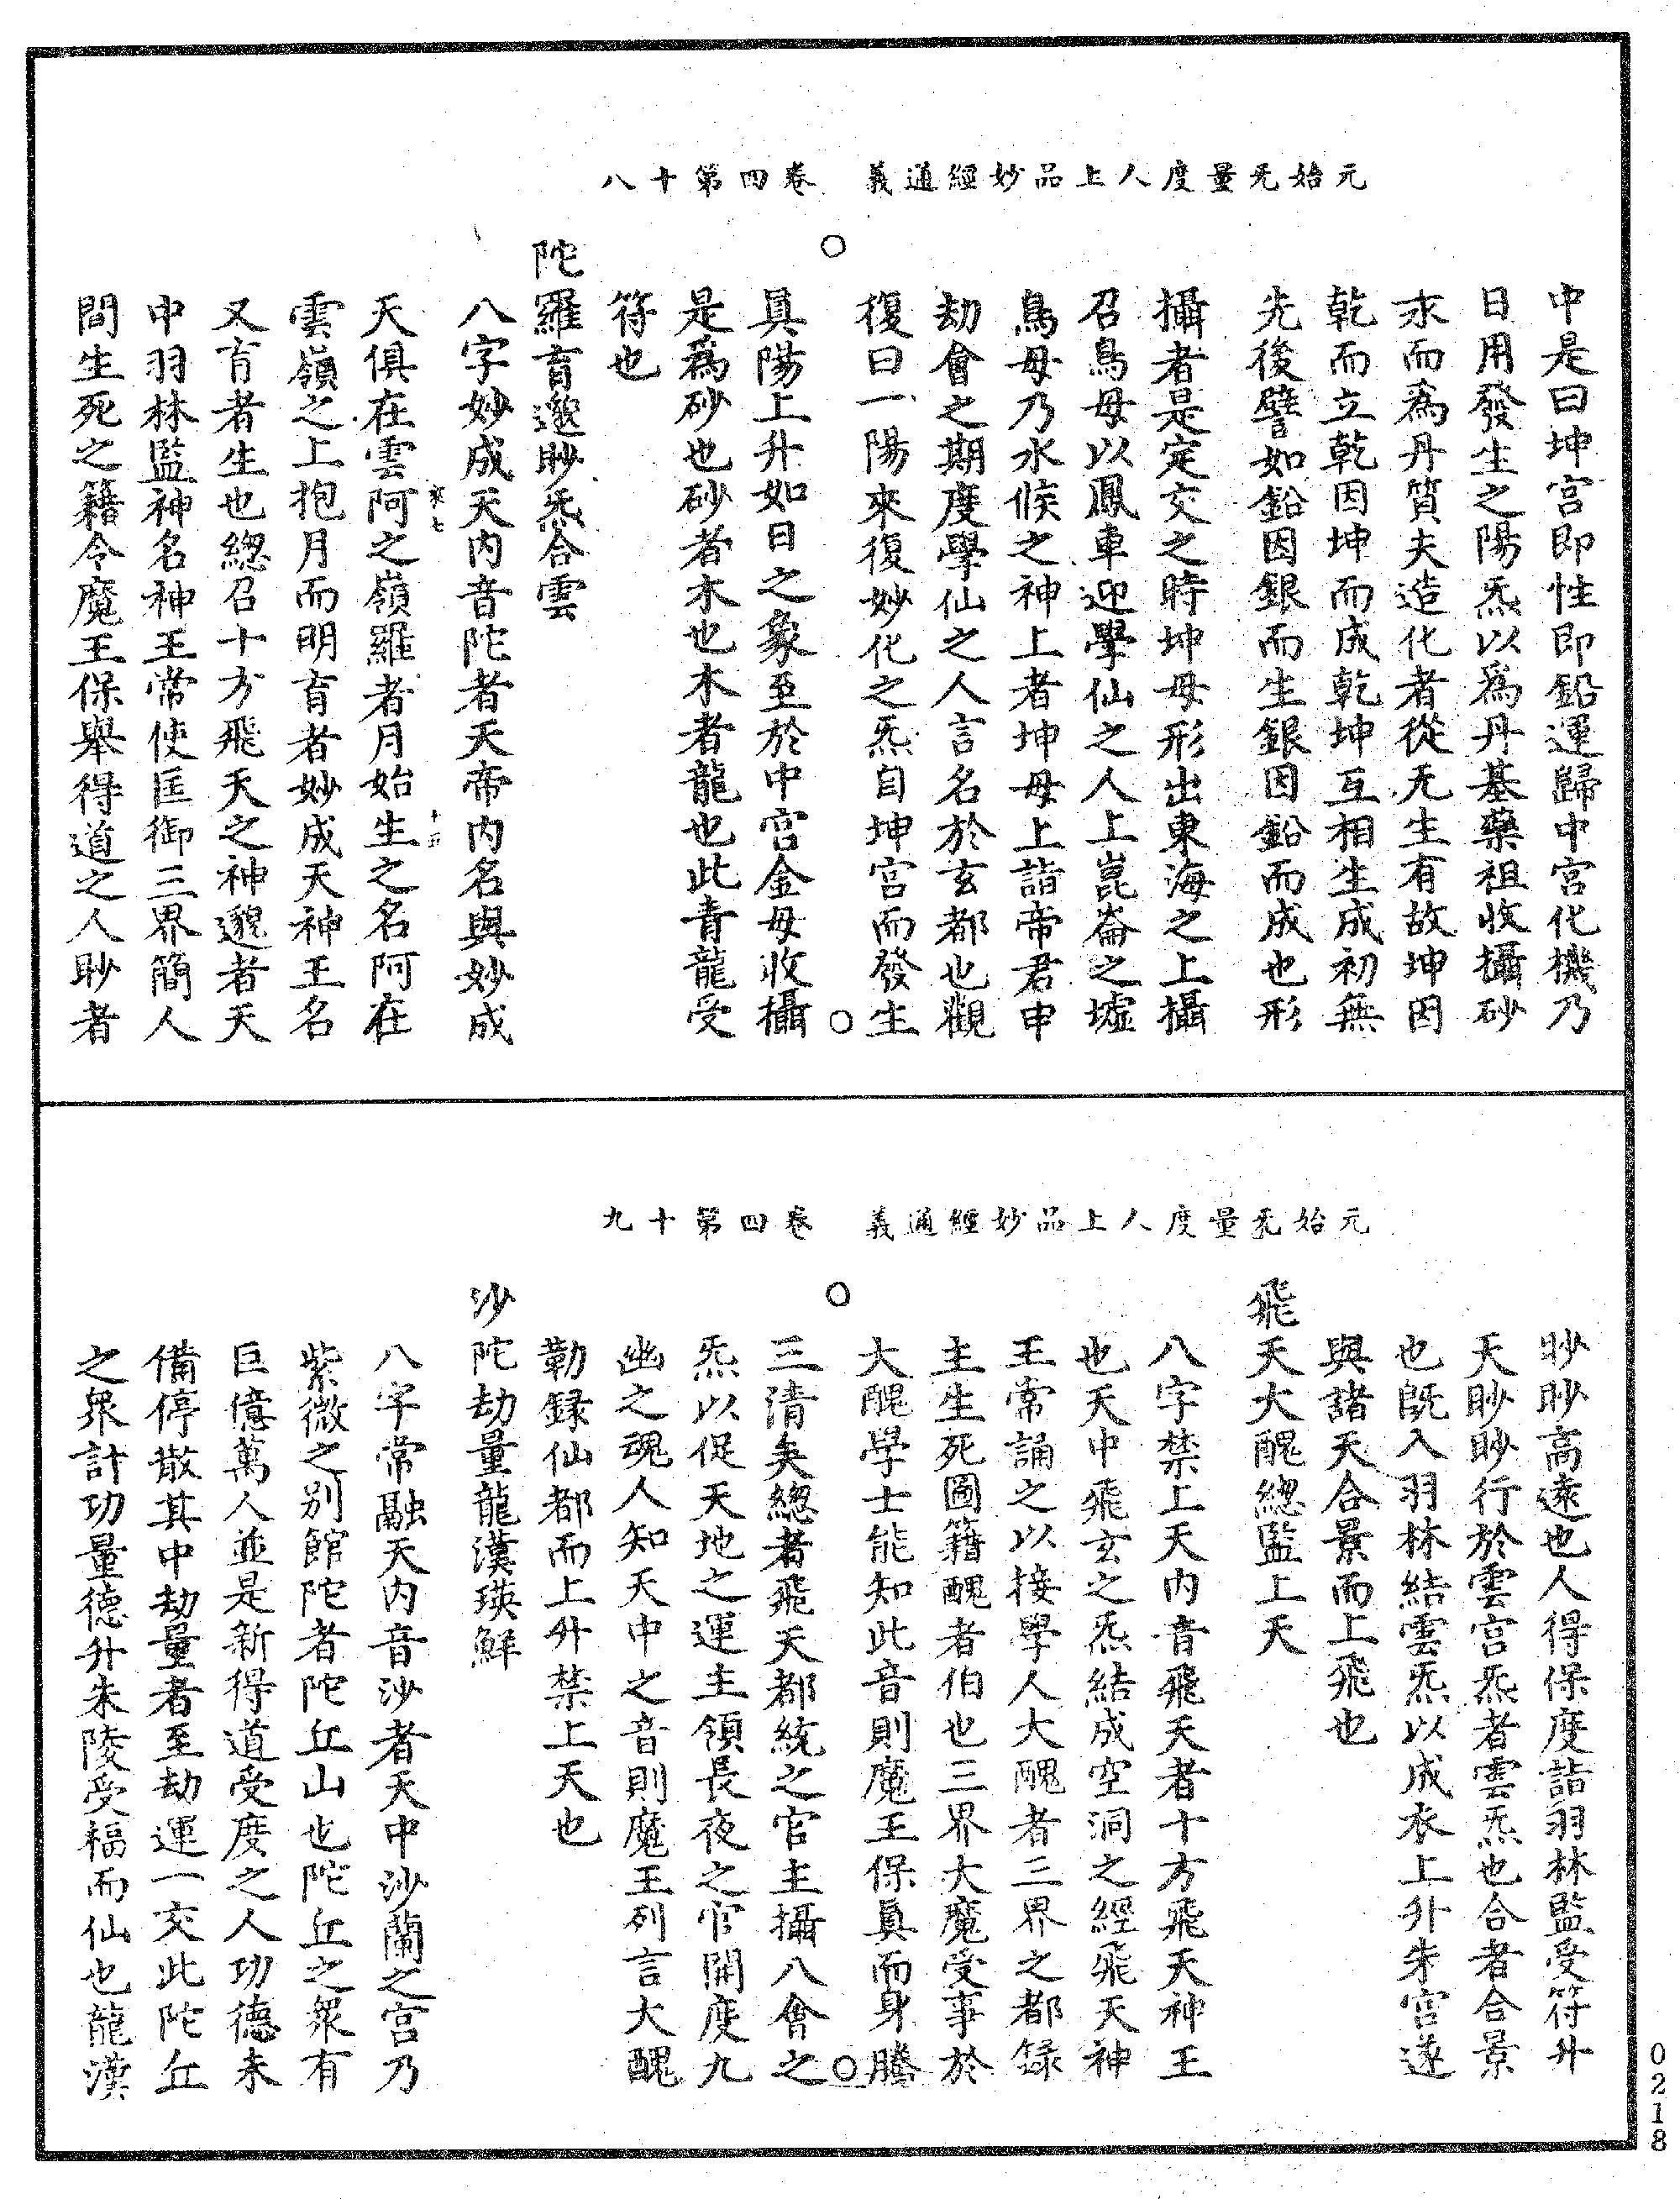 元始无量度人上品妙經通義　卷四第十八
中是曰坤宮即性即鉛運歸中宮化機乃
日用發生之陽炁以爲丹基藥祖收攝砂
汞而爲丹質夫造化者從无生有故坤因
乾而立乾因坤而成乾坤互相生成初無
先後譬如鉛因銀而生銀因鉛而成也形
攝者是定交之時坤母形出東海之上攝
召鳥母以鳳車迎學仙之人上崑崙之墟
鳥母乃水候之神上者坤母上詣帝君申
劫會之期度學仙之人言名於玄都也觀
復曰一陽來復妙化之炁自坤宮而發生
真陽上升如日之象至於中宮金母收攝
是爲砂也砂者木也木者龍也此青龍受
符也
陀羅育邈眇炁合雲
八字妙成天内音陀者天帝内名與妙成
天俱在雲阿之嶺羅者月始生之名阿在
雲嶺之上抱月而明育者妙成天神王名
又育者生也緫召十方飛天之神邈者天
中羽林監神名神王常使匡御三界簡人
間生死之籍令魔王保舉得道之人眇者
元始无量度人上品妙經通義　卷四第十九
眇眇高遠也人得保度詣羽林監受符升
天眇眇行於雲宮炁者雲炁也合者合景
也旣入羽林結雲炁以成衣上升朱宮遂
與諸天合景而上飛也
飛天大醜緫監上天
八字禁上天内音飛天者十方飛天神王
也天中飛玄之炁結成空洞之經飛天神
王常誦之以接學人大醜者三界之都録
主生死圖籍醜者伯也三界大魔受事於
大醜學士能知此音則魔王保真而身騰
三清矣緫者飛天都統之官主攝八會之
炁以促天地之運主領長夜之官開度九
幽之魂人知天中之音則魔王列言大醜
勒録仙都而上升禁上天也
沙陀劫量龍漢瑛鮮
八字常融天内音沙者天中沙蘭之宮乃
紫微之別館陀者陀丘山也陀丘之衆有
巨億萬人並是新得道受度之人功德未
備停散其中劫量者至劫運一交此陀丘
之衆計功量德升朱陵受福而仙也龍漢
0218